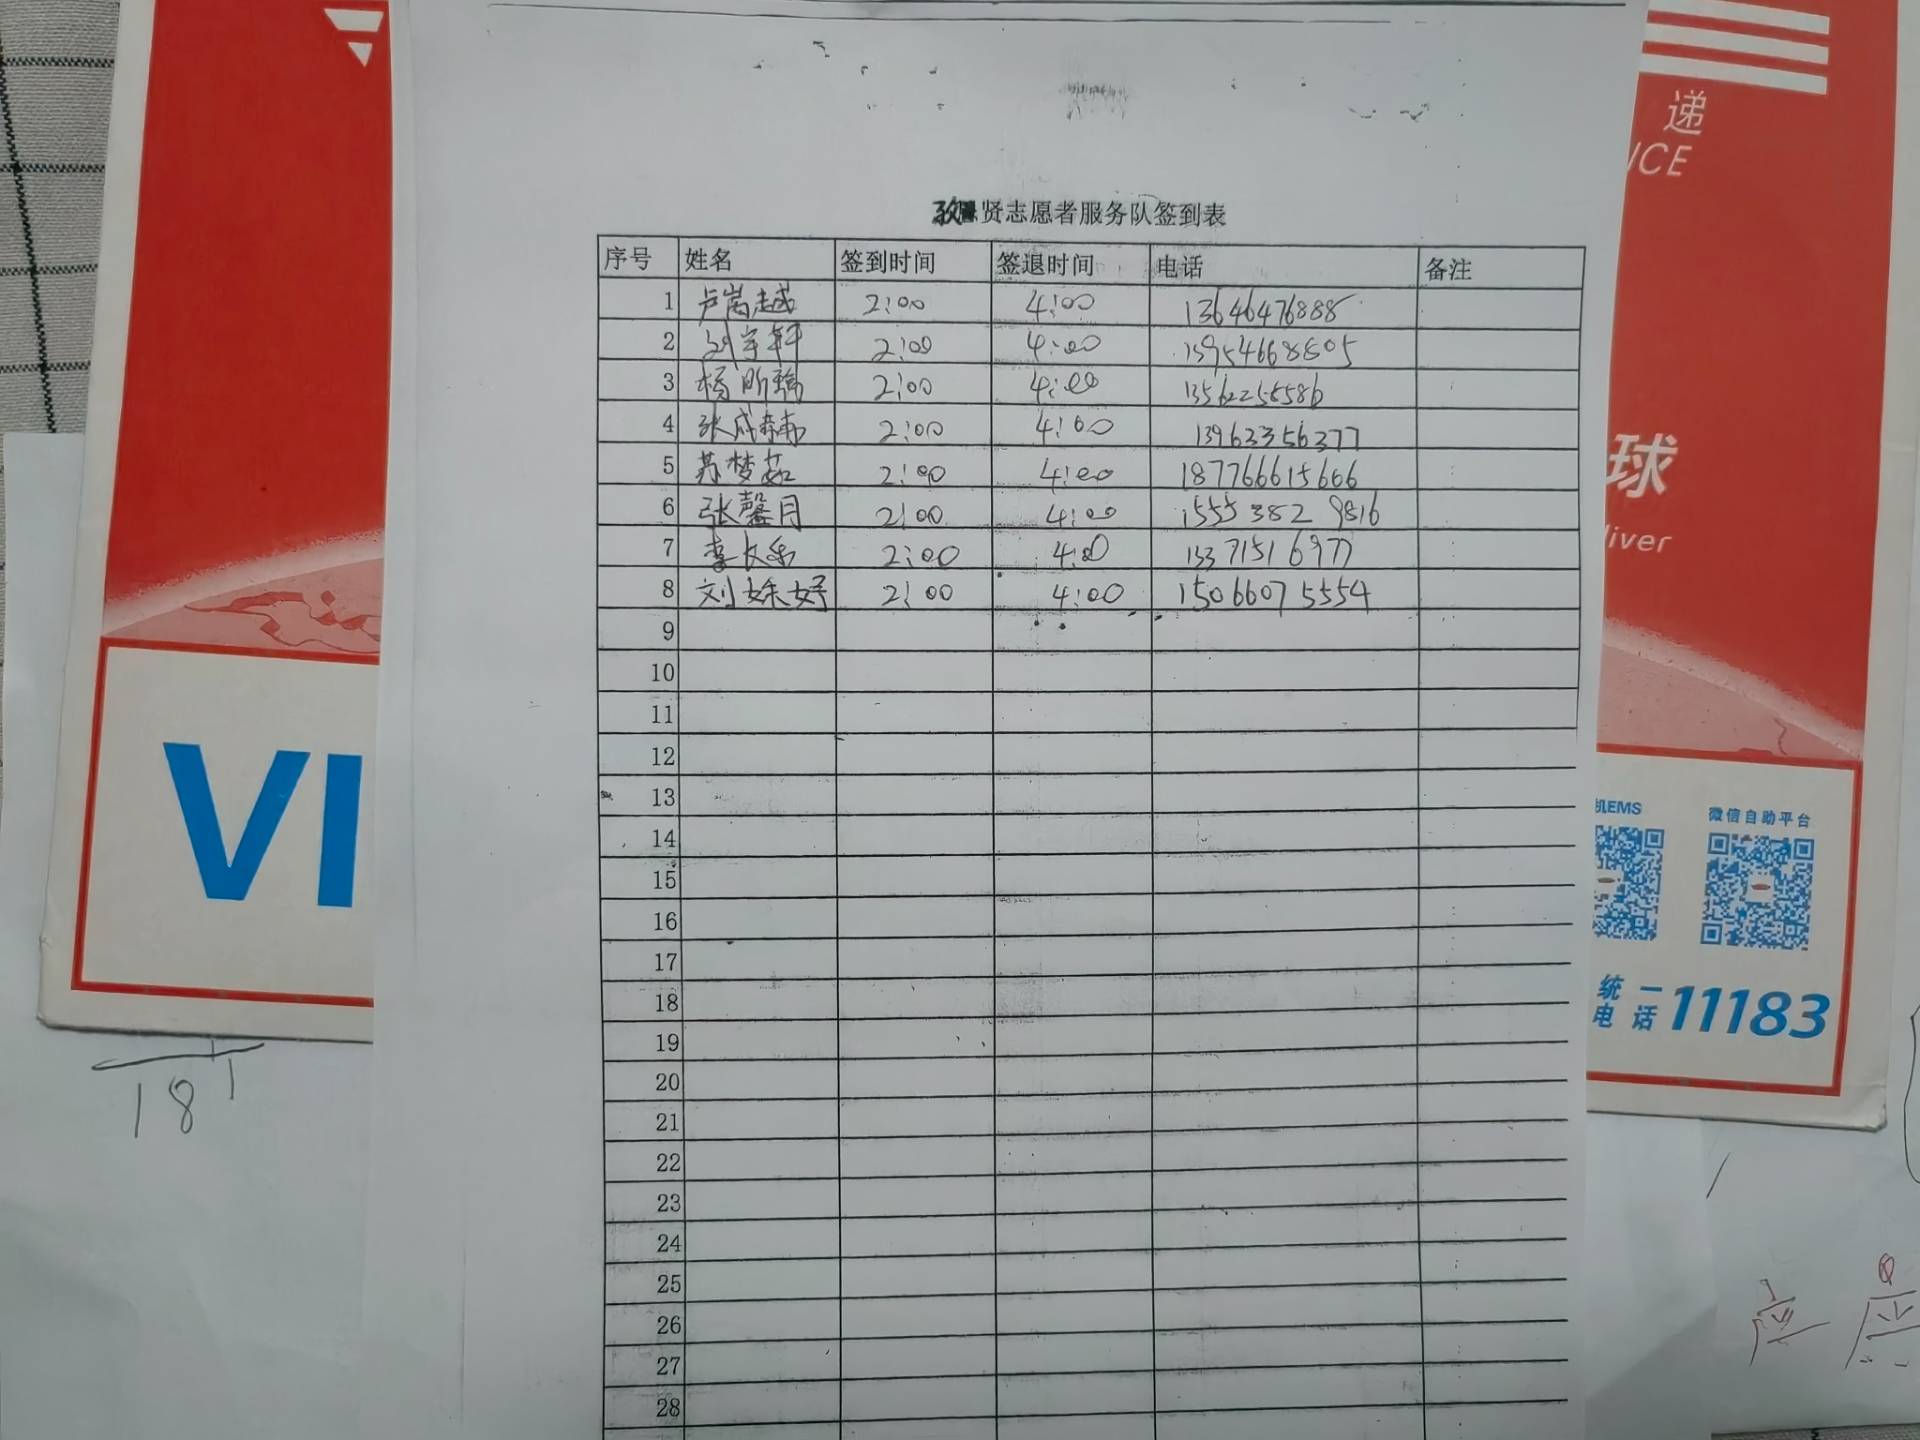 递
NCE
贤志愿者服务队签到表
序号 姓名 签到时间 签退时间 电话 备注
1 卢嵩越 2:00 4:00 13646476888
2 刘宇轩 2:00 4:00 13954668805
3 杨昕瑞 2:00 4:00 13562255586
4 张成赫 2:00 4:00 13963356377
5 苏梦茹 2:00 4:00 187766615666
6 张馨月 2:00 4:00 1555 382 9816
7 李长乐 2:00 4:00 13371516977
8 刘姝妤 2:00 4:00 15066075554
9
10
11
12
13
14
15
16
17
18
19
20
21
22
23
24
25
26
27
28
球
liver
VI
机EMS
微信自助平台
统一
电话 11183
181